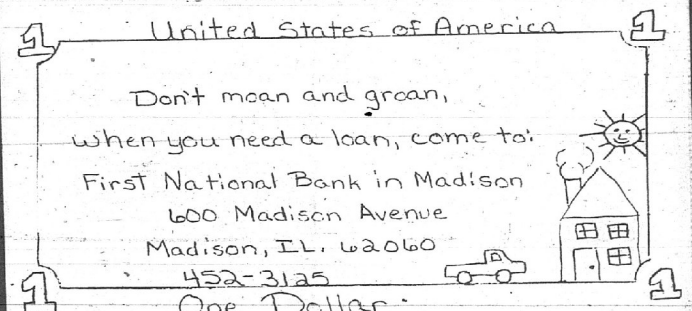 1 United States of America 1
Don't moan and groan,
when you need a loan, come to:
First National Bank in Madison
600 Madison Avenue
Madison, IL. 62060
452-3125
1 One Dollar 1